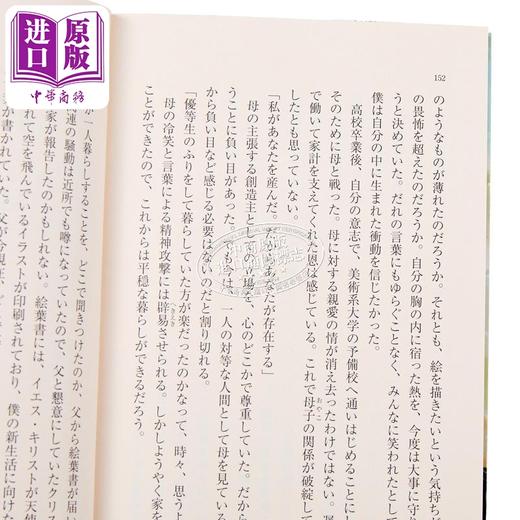 原版
进口
中華商務
152
のようなものが薄れたのだろうか。それとも、絵を描きたいという気持ち
の畏怖を超えたのだろうか。自分の胸の内に宿った熱を、今度は大事に守り
うと決めていた。だれの言葉にもゆらぐことなく、みんなに笑われたとして
僕は自分の中に生まれた衝動を信じたかった。
高校卒業後、自分の意志で、美術系大学の予備校へ通いはじめることに
そのために母と戦った。母に対する親愛の情が消え去ったわけではない。
で働いて家計を支えてくれた恩は感じている。これで母子の関係が破綻し
したとも思っていない。
「私があなたを産んだ。だからあなたが存在する」
母の主張する創造主としての立場を、心のどこかで尊重していた。だから
うことに負い目があった。でも今は、一人の対等な人間として母を見ている
から負い目など感じる必要はないのだと割り切れる。
「優等生のふりをして暮らしていた方が楽だったのかなって、時々、思うよ
母の冷笑と言葉による精神攻撃には辟易させられる。しかしようやく家を
ことができたので、これからは平穏な暮らしができるだろう。
が一人暮らしすることを、どこで聞きつけたのか、父から絵葉書が届い
連の騒動は近所でも噂になっていたので、父と懇意にしていたクリス
家が報告したのかもしれない。絵葉書には、イエス・キリストが天使
れて空を飛んでいるイラストが印刷されており、僕の新生活に向けた
が書かれていた。父が今現在、